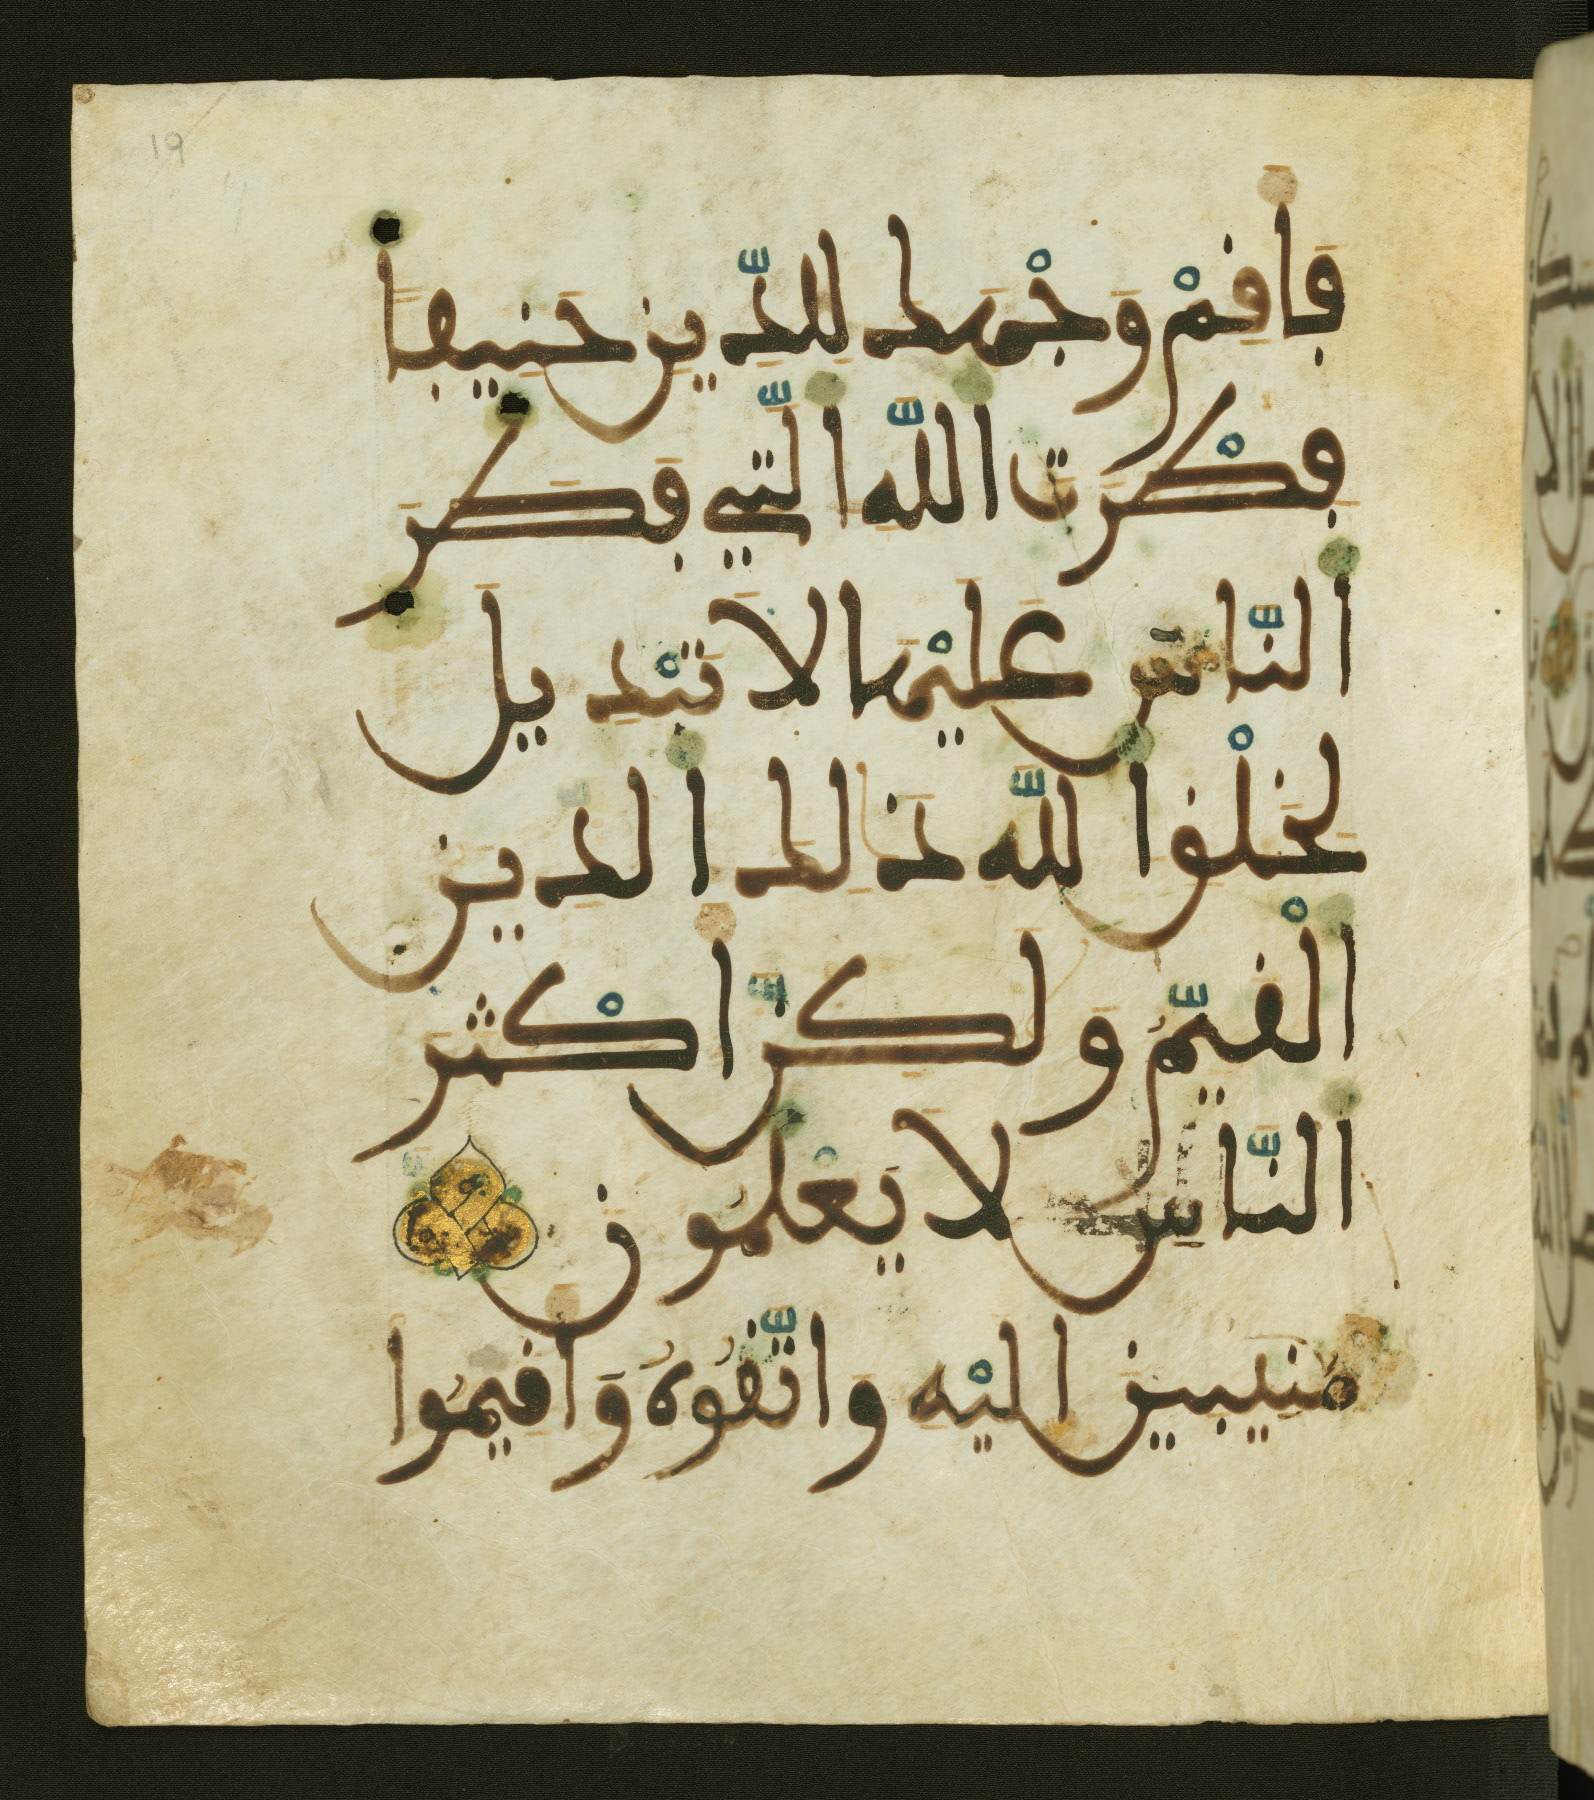 19
فَأَقِمْ وَجْهَكَ لِلدِّينِ حَنِيفاً
فِطْرَتَ اَللَّهِ اِلَّتِي فَطَرَ
اَلنَّاسَ عَلَيْهَا لَا تَبْدِيلَ
لِخَلْقِ اِللَّهِ ذَالِكَ اَلدِّينُ
اُلْقَيِّمُ وَلَكِنَّ أَكْثَرَ
اَلنَّاسِ لَا يَعْلَمُونَ
مُنِيبِينَ إِلَيْهِ وَاتَّقُوهُ وَأَقِيمُوا